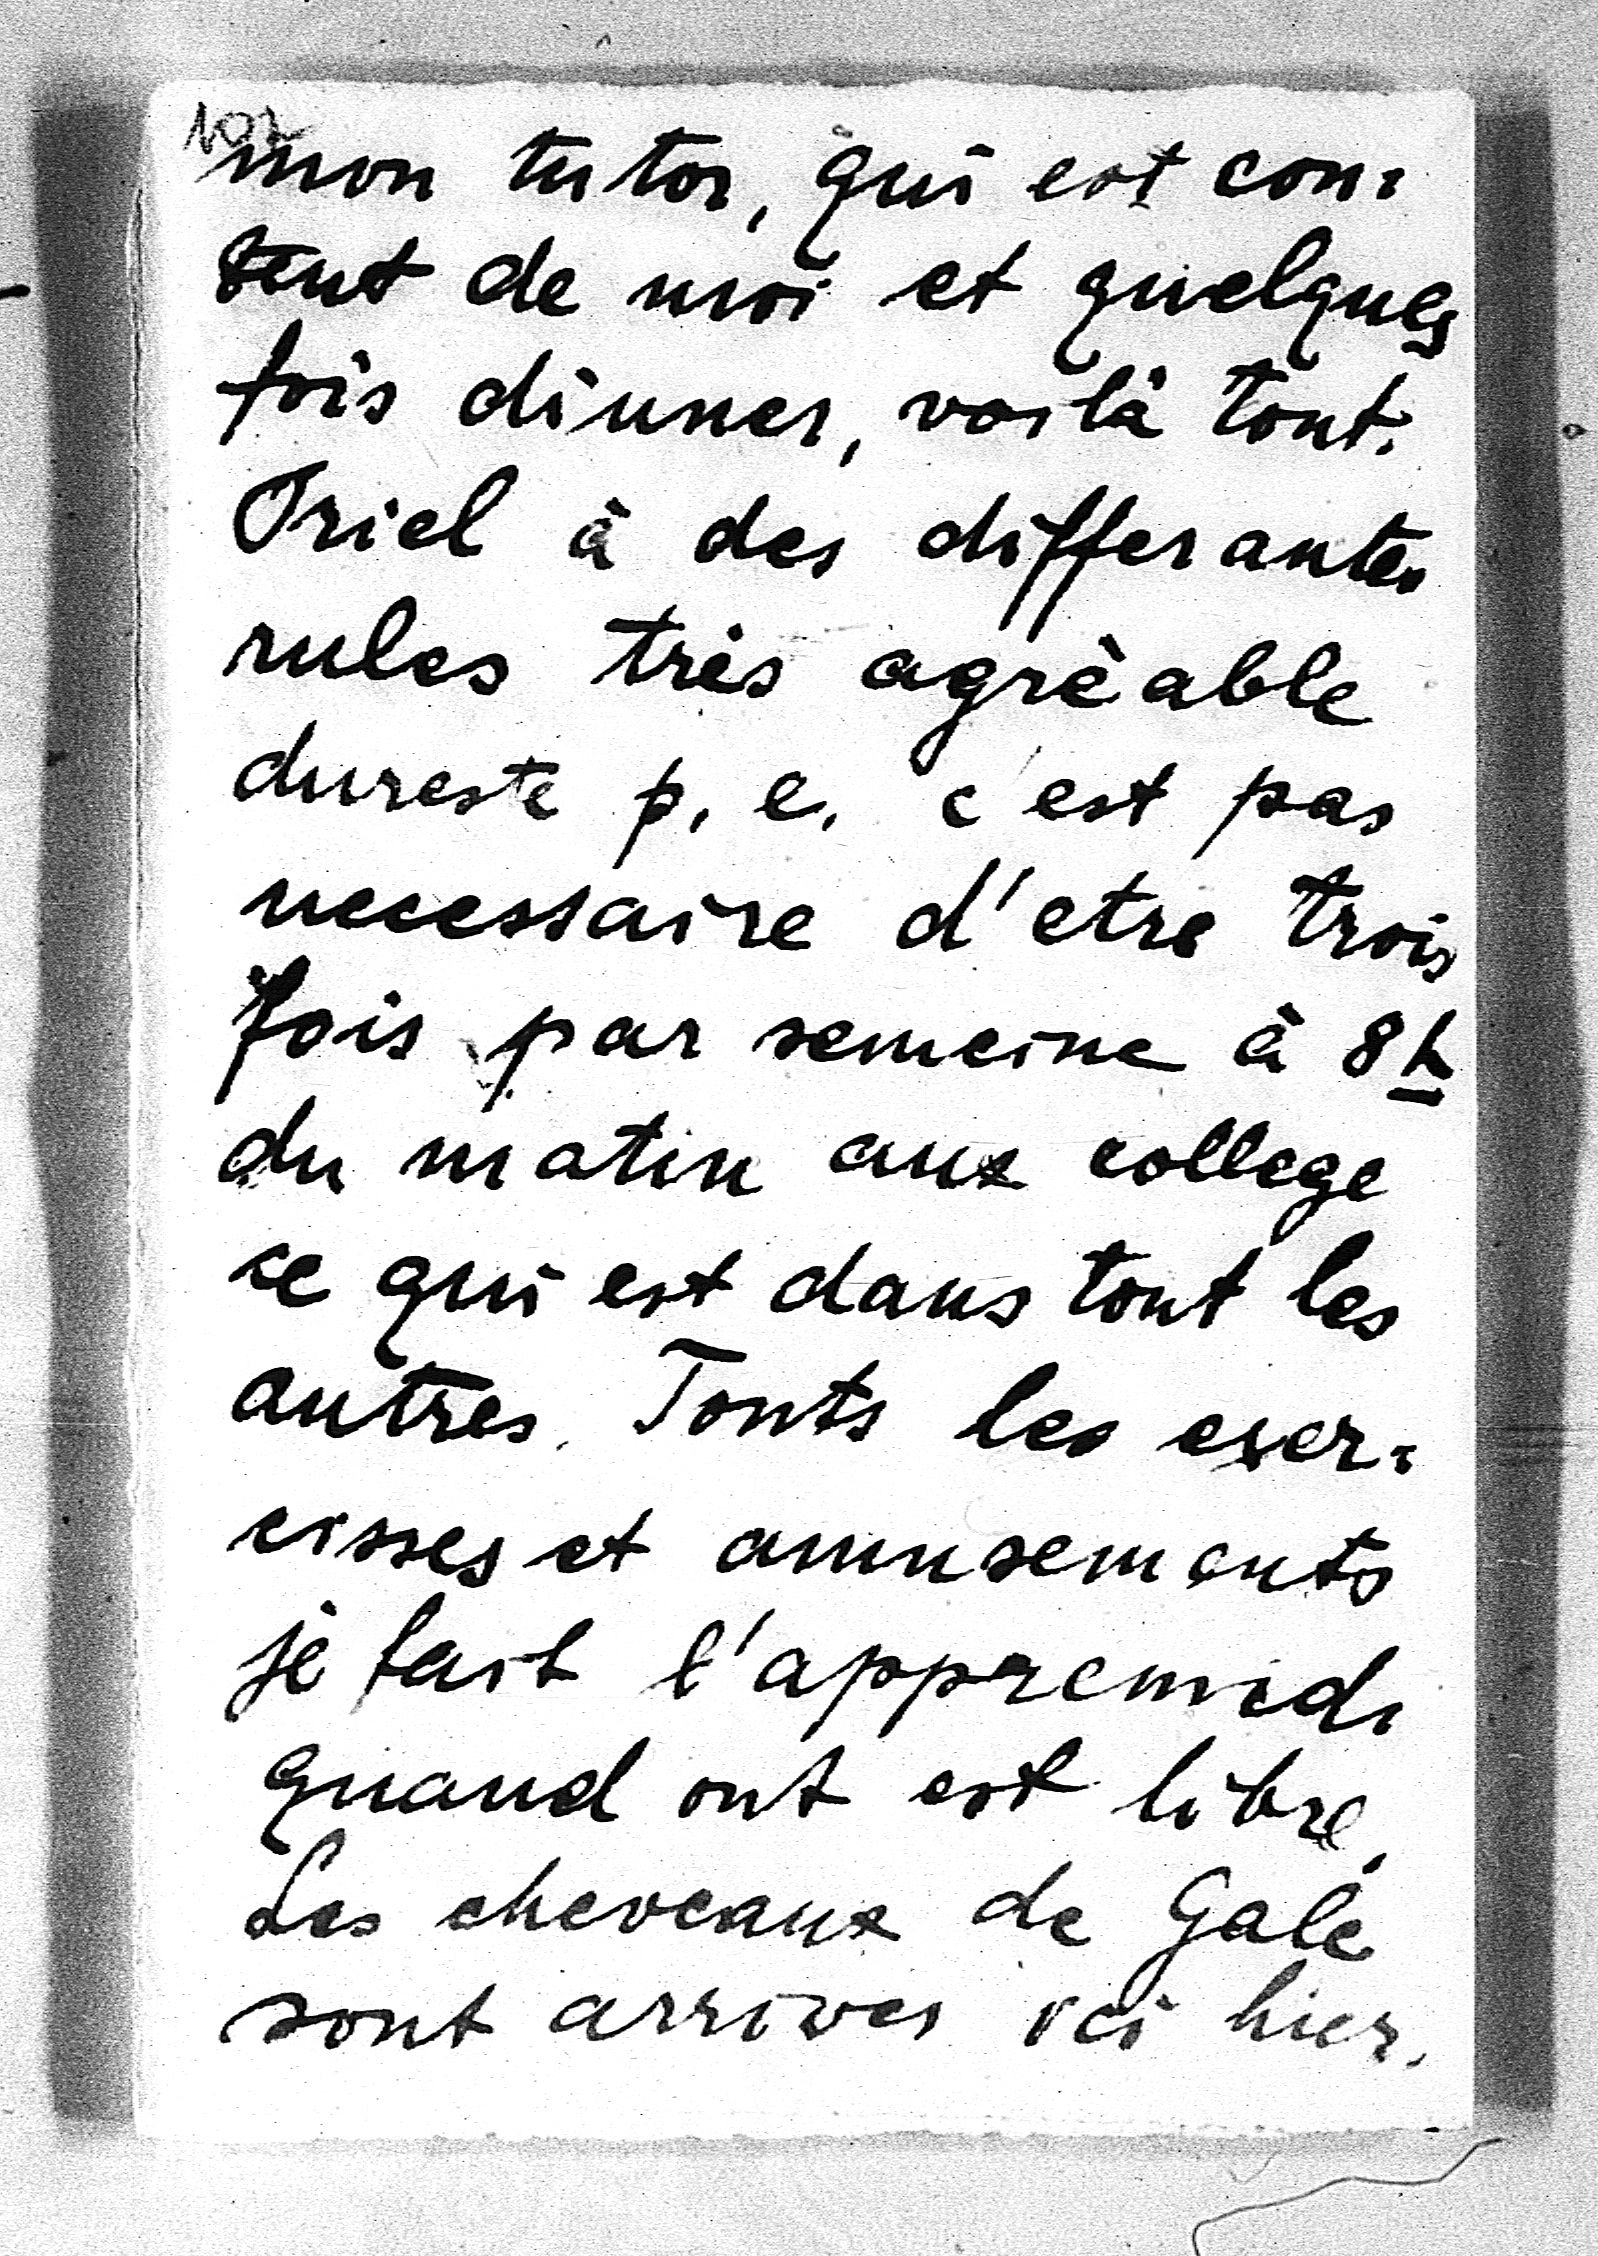 107
mon tutor, qui est con-
tent de moi et quelques
fois dinner, voilà tout.
Oriel à des differantes
rules très agrèable
dureste p. e. c'est pas
necessaire d'etre trois
fois par semeine à 8h
du matin aux college
ce qui est dans tout les
autres. Touts les exer-
cisses et amusements
je fait l'appremidi
quand ont est libre.
Les cheveaux de Gale
sont arrives ici hier.